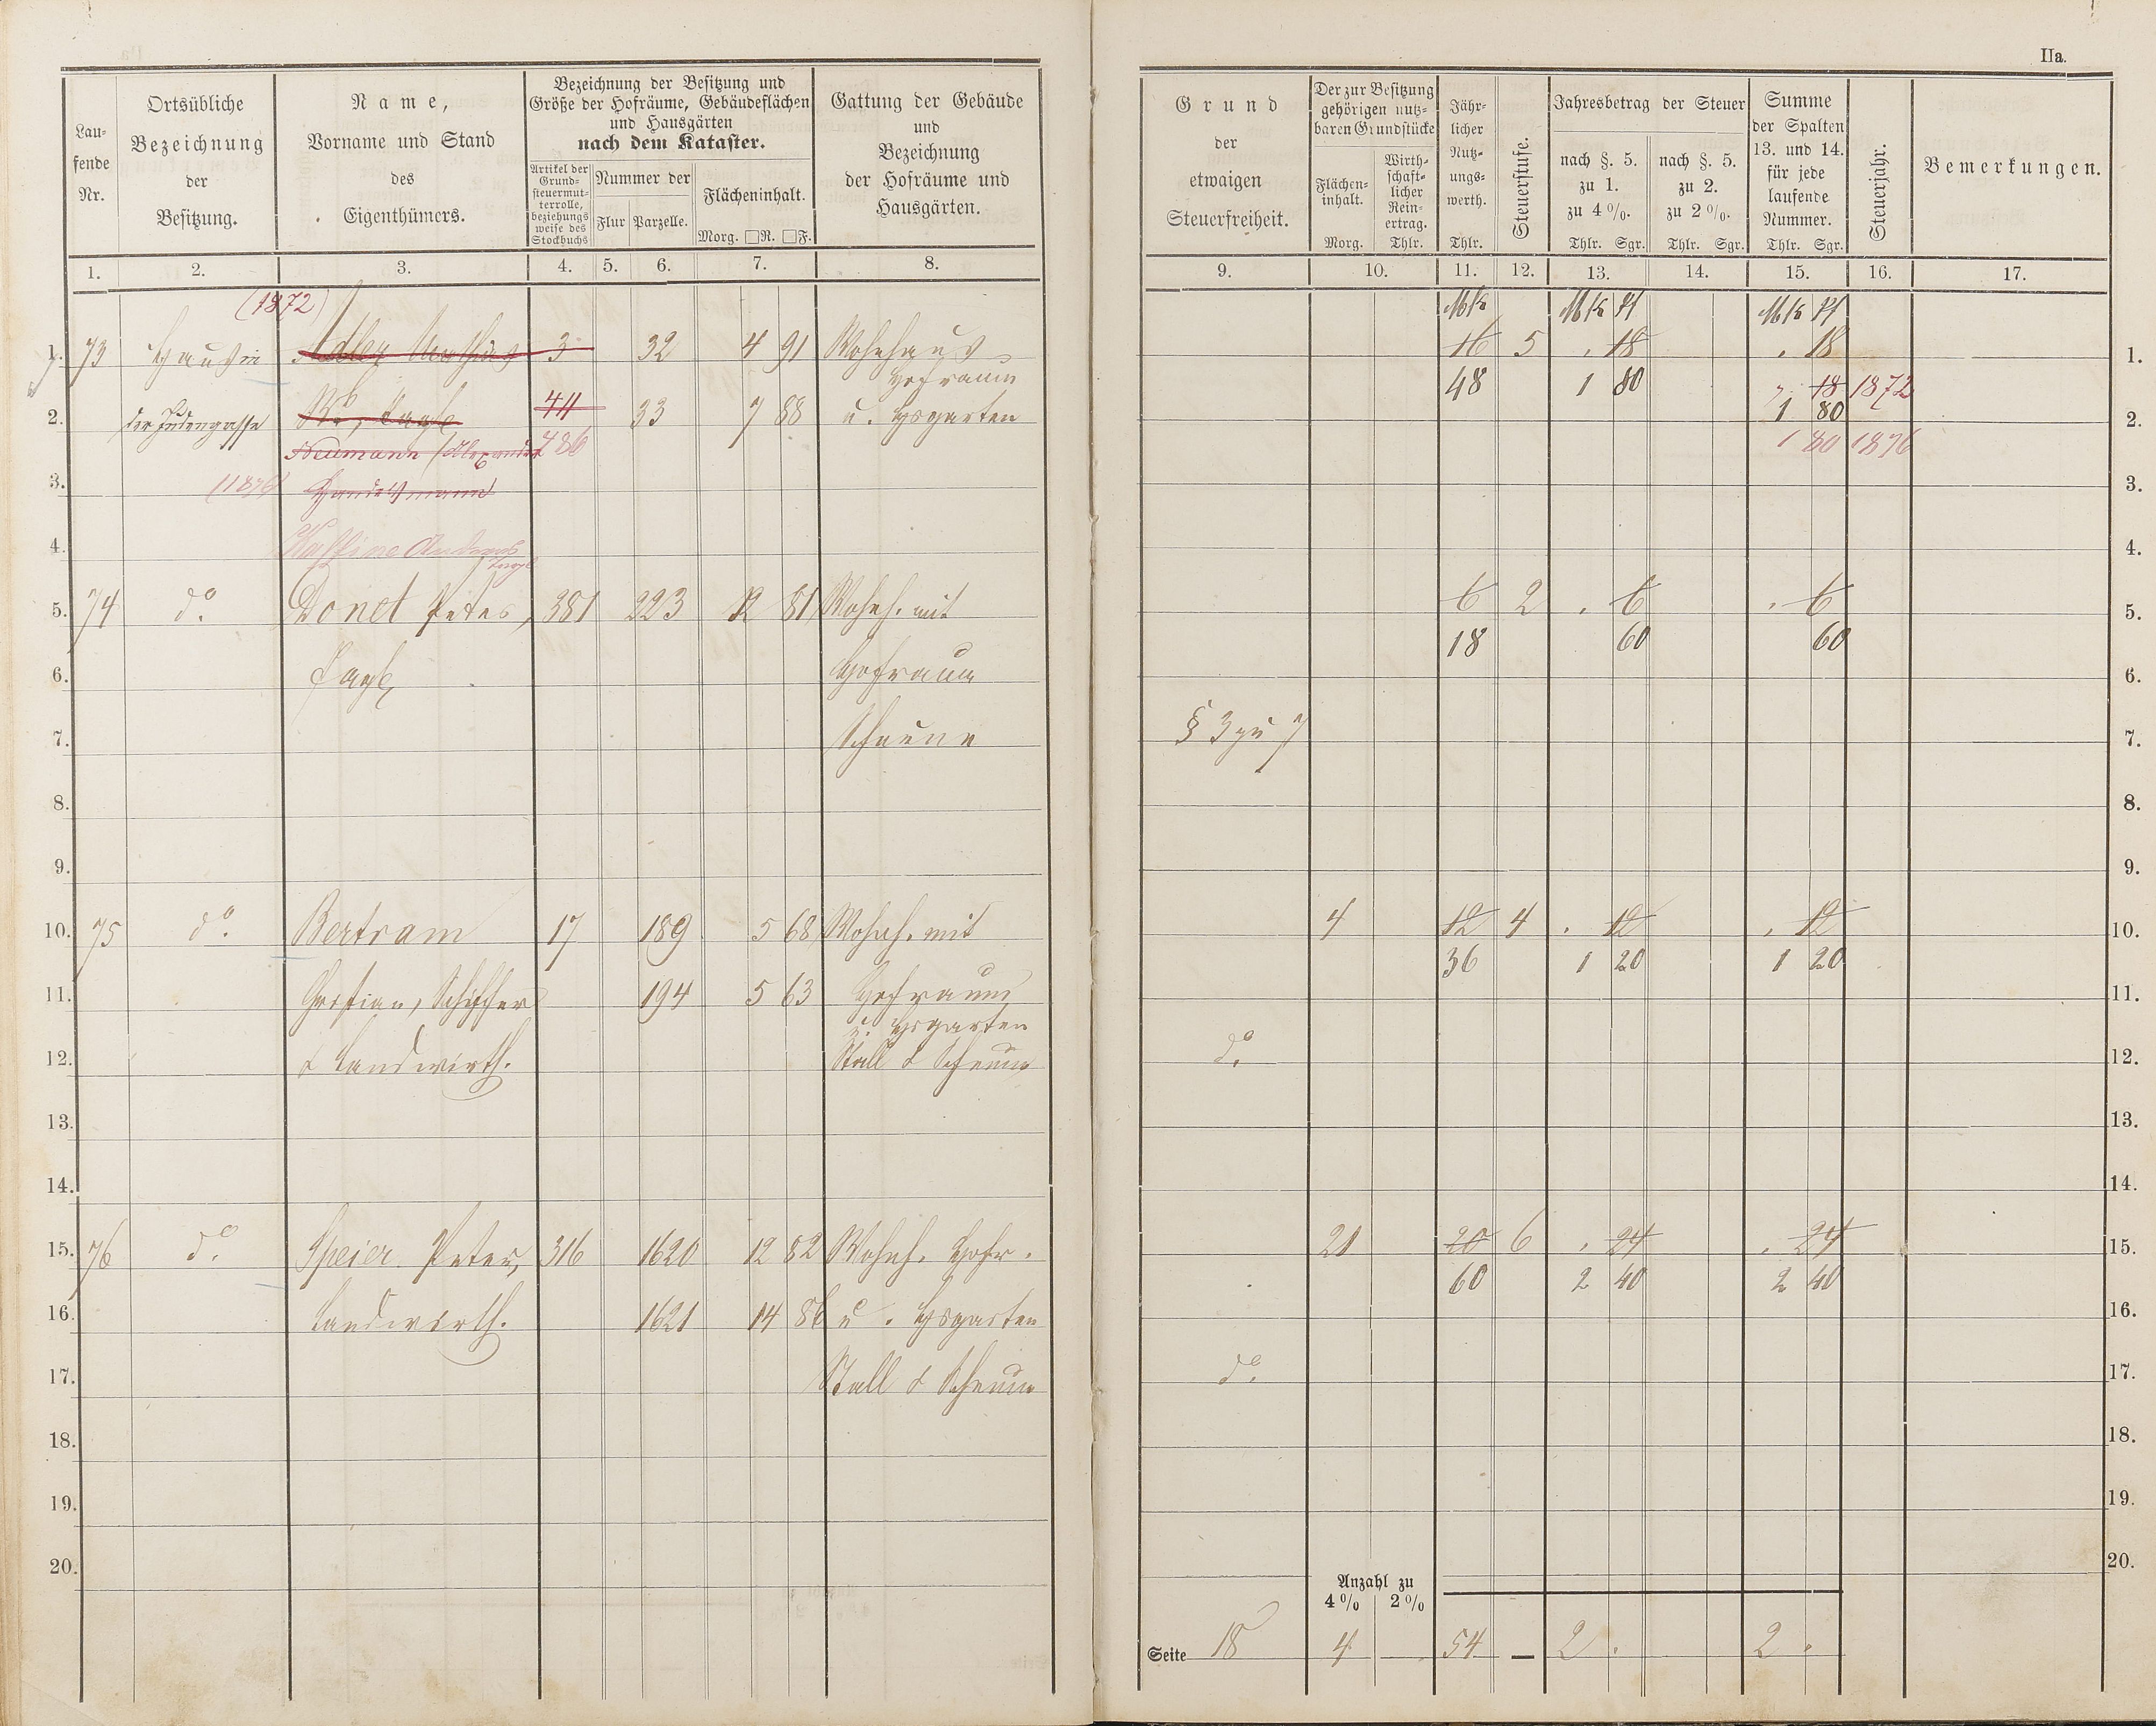 IIa.
Laufende Nr.
Ortsübliche Bezeichnung der Besitzung.
Name, Vorname und Stand des Eigenthümers.
Bezeichnung der Besitzung und Größe der Hofräume, Gebäudeflächen und Hausgärten nach dem Kataster.
Artikel der Grundsteuermutterrolle, beziehungsweise des Stockbuchs
Nummer der
Flur
Parzelle.
Flächeninhalt.
Morg. □R. □F.
Gattung der Gebäude und Bezeichnung der Hofräume und Hausgärten.
Grund der etwaigen Steuerfreiheit.
Der zur Besitzung gehörigen nutzbaren Grundstücke
Flächeninhalt. Morg.
Wirthschaftlicher Reinertrag. Thlr.
Jährlicher Nutzungswerth. Thlr.
Steuerstufe.
Jahresbetrag der Steuer
nach §. 5. zu 1. zu 4 %. Thlr. Sgr.
nach §. 5. zu 2. zu 2 %. Thlr. Sgr.
Summe der Spalten 13. und 14. für jede laufende Nummer. Thlr. Sgr.
Steuerjahr.
Bemerkungen.
1. 2. 3. 4. 5. 6. 7. 8. 9. 10. 11. 12. 13. 14. 15. 16. 17.
(1872) Mk Mk Pf Mk Pf
1. 73 Haus in Adler 3 32 4 91 Wohnhaus 16 5 . 18 . 18 1.
Hofraum 48 1 80 18 1872
2. der Judengasse 411 33 7 88 u. Hsgarten 1 80 2.
Neumann Alexander 486 1 80 1876
3. (1876) Handelsmann 3.
4. Andreas 4.
5. 74 do. Donet Peter, 381 223 12 81 Wohnh. mit 6 2 . 6 . 6 5.
18 60 60
6. Hofraum 6.
7. Scheune § 3 zu 7 7.
8. 8.
9. 9.
10. 75 do. Bertram 17 189 5 68 Wohnh. mit 4 12 4 . 12 . 12 10.
36 1 20 1 20
11. Schiffer 194 5 63 Hofraum 11.
u. Hsgarten
12. & Landwirth. Stall & Scheune do. 12.
13. 13.
14. 14.
15. 76 do. Speier Peter, 316 1620 12 82 Wohnh. Hofr. 21 20 6 . 24 . 24 15.
60 2 40 2 40
16. Landwirth. 1621 14 86 u. Hsgarten 16.
17. Stall & Scheune do. 17.
18. 18.
19. 19.
20. 20.
Anzahl zu
4 % 2 %
Seite 18 4 54 — 2 . 2 .